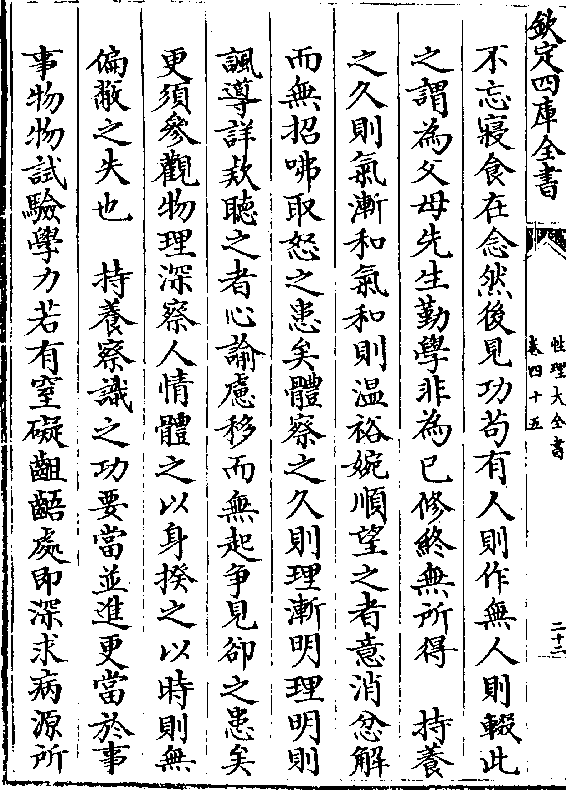 欽定四庫全書
性理大全書
卷四十五
二十二
不忘寢食在念然後見功苟有人則作無人則輟此
之謂為父母先生勤學非為己修終無所得　持養
之久則氣漸和氣和則溫裕婉順望之者意消忿解
而無招咈取怒之患矣體察之久則理漸明理明則
諷導詳款聽之者心諭慮移而無起爭見卻之患矣
更須參觀物理深察人情體之以身揆之以時則無
偏蔽之失也　持養察識之功要當並進更當於事
事物物試驗學力若有窒礙齟齬處即深求病源所